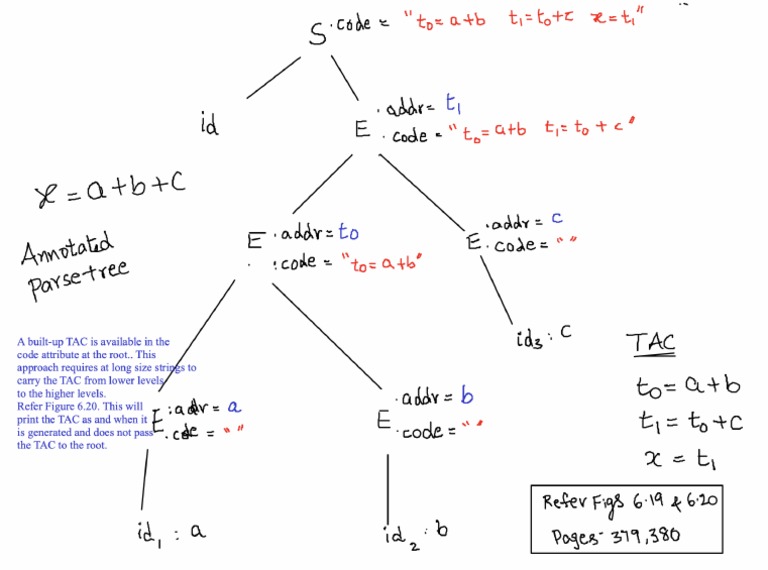 S .code = "t₀ = a+b t₁ = t₀+c x = t₁"
id
E .addr = t₁
.code = "t₀ = a+b t₁ = t₀ + c"
x = a+b+c
Annotated
Parse tree
E .addr = t₀
.code = "t₀ = a+b"
E .addr = c
.code = " "
id₃ : c
A built-up TAC is available in the
code attribute at the root.. This
approach requires at long size strings to
carry the TAC from lower levels
to the higher levels.
Refer Figure 6.20. This will
print the TAC as and when it
is generated and does not pass
the TAC to the root.
E .addr = a
.code = " "
E .addr = b
.code = " "
id₁ : a
id₂ : b
TAC
t₀ = a+b
t₁ = t₀+c
x = t₁
Refer Figs 6.19 & 6.20
Pages- 379,380